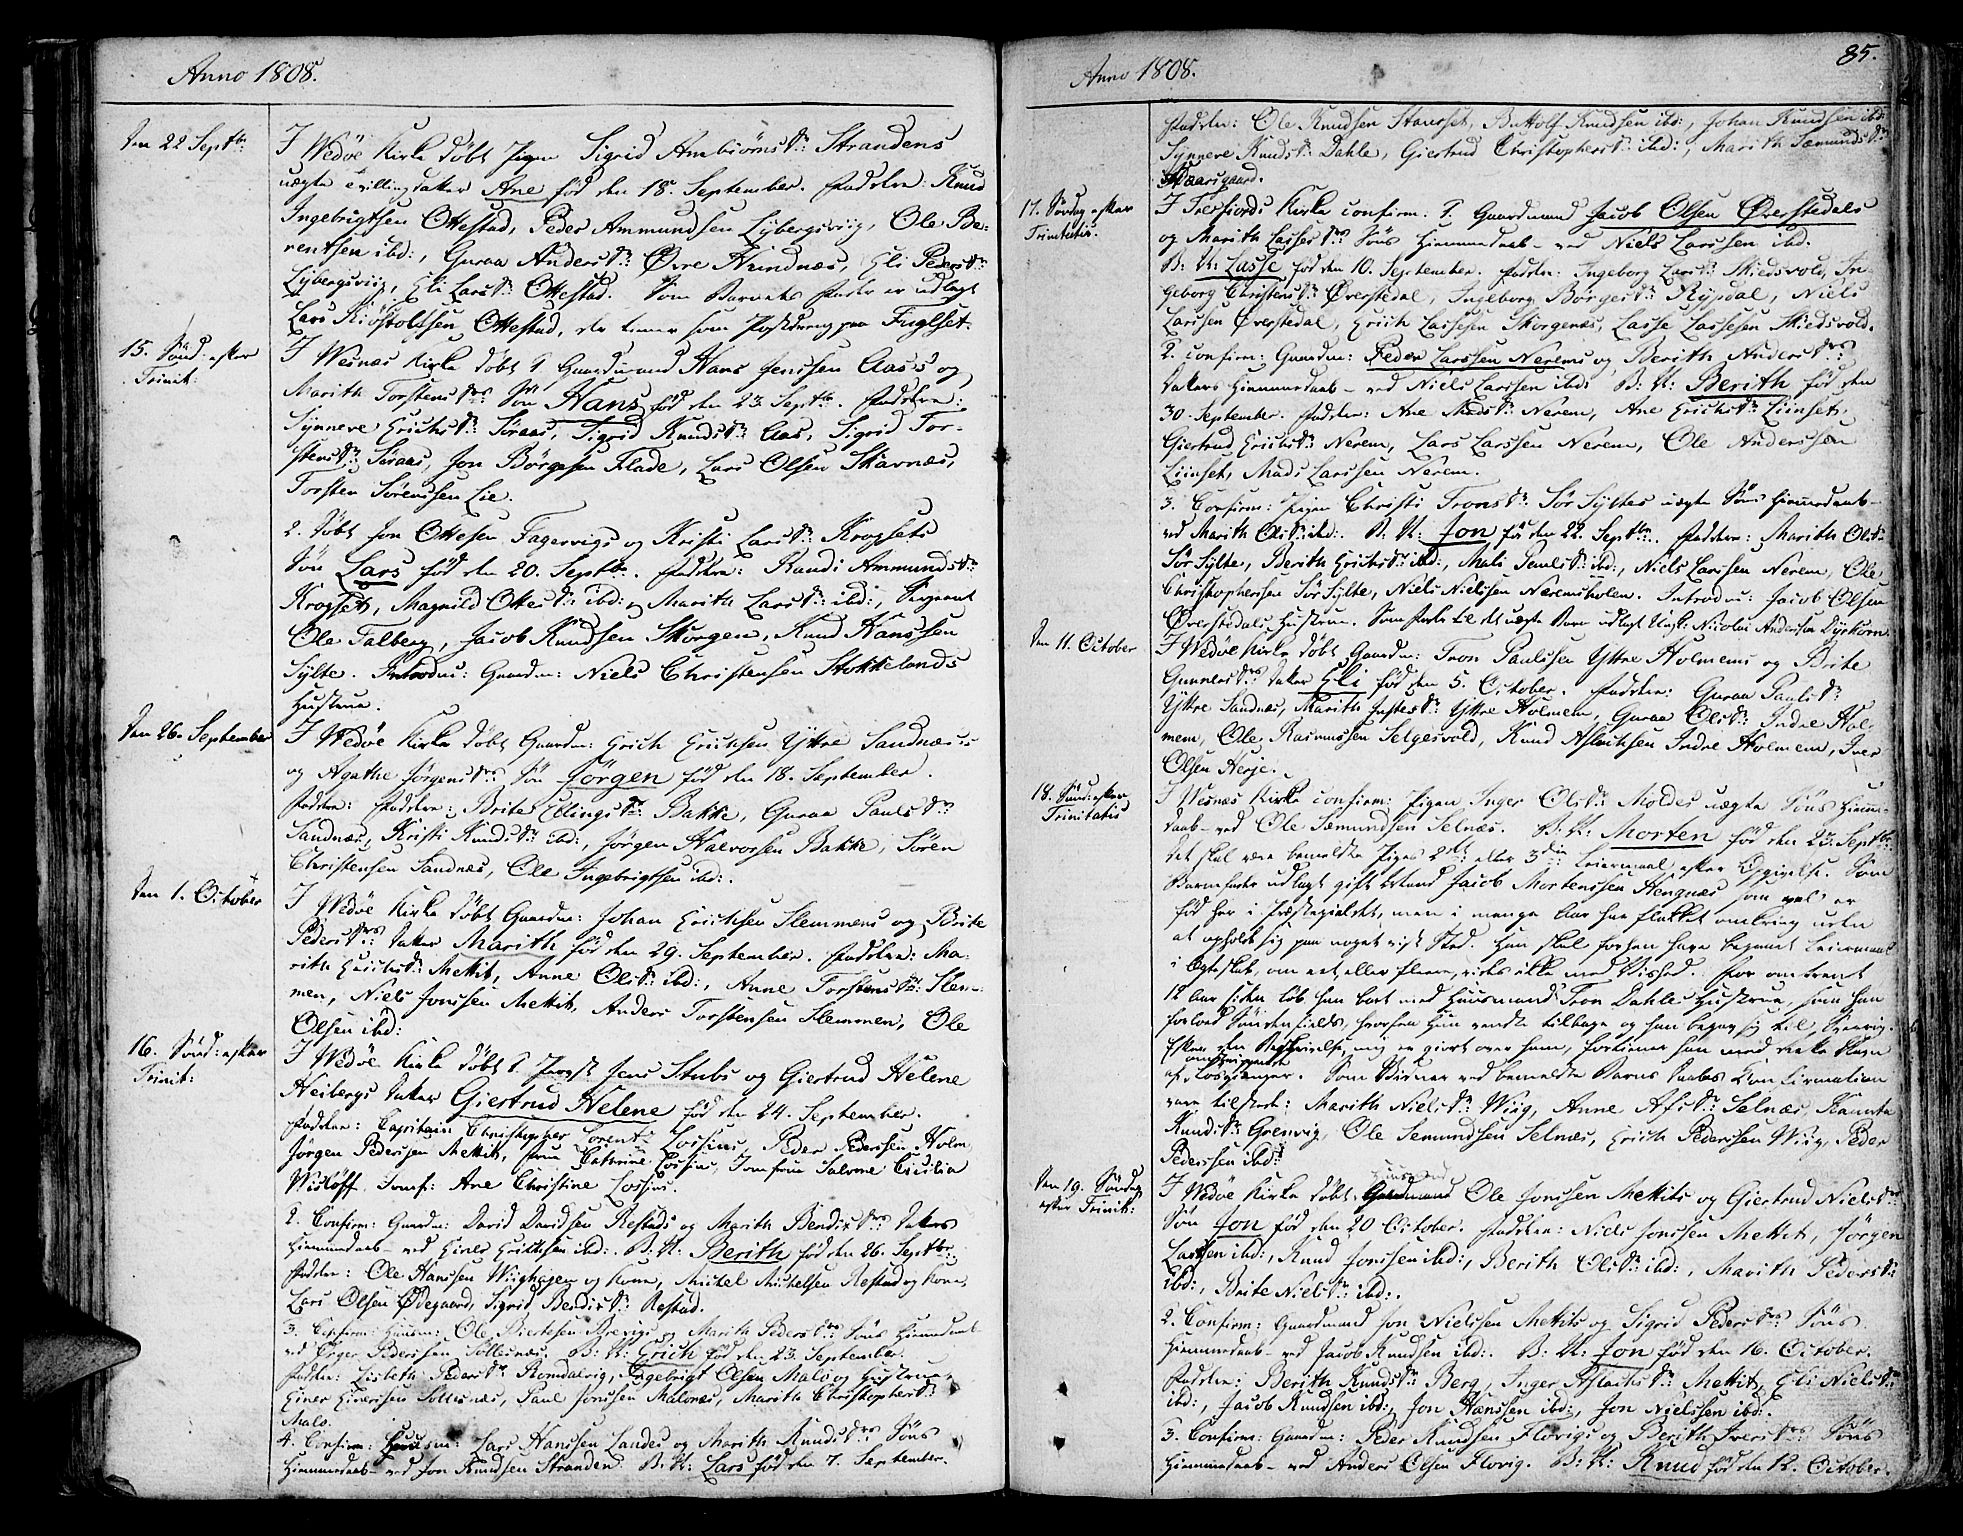 Anno 1808.
Den 22 Septbr
I Wedöe Kirke döbt Pigen Sigrid Ambiörnsdr: Strandens
uægte tvillingdatter Ane föd den 18. September. Faddere: Knud
Ingebrigtsen Ottestad, Peder Ammundsen Lybergsviig, Ole Be-
rentsen ibd:, Guraa Andersdr: Övre Hundnæs, Eli Pedersdr:
Lybergsviig, Eli Larsdr: Ottestad. Som Barnets Fader er udlagt
Lars Kiöstolfsen Ottestad, der tiener som Postdreng paa Fuglset.
15. Sönd: efter
Trinit:
I Wesnæs Kirke döbt 1 Gaardmand Hans Jenssen Aases og
Marith Torstensdrs Sön Hans föd den 23. Septbr. Faddere:
Synneve Erichsdr: Söraas, Sigrid Knudsdr: Aas, Sigrid Tor-
stensdr: Söraas, Jon Börgesen Flade, Lars Olsen Skavnæs,
Torsten Sörenssen Lie.
2. döbt Jon Ottesen Fagervigs og Kristi Larsdr: Krogsets
Sön Lars föd den 20. Septbr. Faddere: Randi Ammundsdr:
Krogset, Magnild Ottesdr: ibd:, Marith Larsdr: ibd:, Sergeant
Ole Talberg, Jacob Knudsen Skorgen, Knud Hanssen
Sylte. Introdu: Gaardm: Niels Christensen Stokkelands
Hustrue.
Den 26. September
I Wedöe Kirke döbt Gaardm: Erich Erichsen Yttre Sandnæses
og Agathe Jörgensdrs Sön Jörgen föd den 18. September.
Faddere: Faddere: Brite Ellingsdr Bakke, Guraa Paulsdr
Sandnæs, Kristi Knudsdr: ibd:, Jörgen Halvorsen Bakke, Sören
Christensen Sandnæs, Ole Ingebrigtsen ibd:.
Den 1. October
I Wedöe Kirke döbt Gaardm: Johan Erichsen Flemmens og Brite
Pedersdrs: datter Marith föd den 29. September. Faddere: Ma-
rith Erichsdr: Mektit, Anne Olsdr: ibd:, Anne Torstensdr: Flem-
men, Niels Jonssen Mektit, Anders Torstensen Flemmen, Ole
Olsen ibd:
16. Sönd: efter
Trinit:
I Wedöe Kirke döbt 1 Jens Stubs og Giertrud Helene
Heibergs datter Giertrud Helene föd den 24. September.
Faddere: Capitain Christopher Lorentz Lossius, Peder Pederssen Holm
Jörgen Pederssen Mektit, Frue Catrine Lossius, Jomfrue Salome Cicilia
Wislöff, Jomf: Ane Christine Lossius.
2. Confirm: Gaardm: David Davidsen Restads og Marith Bendixdrs: datters
Hiemmedaab ved Einer Erichsen ibd:. B: N: Berith föd den 26. Septbr.
Faddere: Ole Hanssen Wiighagen og Kone, Michel Michelsen Restad og Kone
Lars Olsen Ödegaard, Sigrid Bendixdr: Restad.
3. Confirm: Huusm: Ole Biertesen Brevigs og Marith Pedersdrs Söns Hiemmedaab
ved Erger Pederssen Sollesnæs. B: N: Erich föd den 23. September.
Faddere: Lisbeth Pedersdr Romdalsvig, Engebrigt Olsen Malo og Hustrue,
Einer Einersen Sollesnæs, Paul Jonssen Malonæs, Marith Christophersdr:
Malo.
4. Confirm: Huusm: Lars Hanssen Landes og Marith Knudsdrs Söns
Hiemmedaab ved Jon Knudsen Stranden. B: N: Lars föd den 7. September.
Anno 1808.
85.
Faddere: Ole Knudsen Stavset, Buttolf Knudsen ibd:, Johan Knudsen ibd:
Synneve Knudsdr: Dahle, Giertrud Christophersdr: ibd:, Marith Sæmundsdr
Waarsgaard.
17. Söndag efter
Trinitatis.
I Tresfiords Kirke confirm: 1. Gaardmand Jacob Olsen Överstedals
og Marith Lassesdrs Söns Hiemmedaab ved Niels Larssen ibd.
B: N: Lasse föd den 10. September. Faddere: Ingeborg Larsdr: Skiedsvold, In-
geborg Christensdr: Överstedal, Ingeborg Börgesdr: Rypdal, Niels
Larssen Överstedal, Erich Lassesen Skorgenæs, Lasse Lassesen Skiedsvold.
2. confirm: Gaardm: Peder Larssen Nerems og Berith Andersdrs:
datters Hiemmedaab ved Niels Larssen ibd: B: N: Berith föd den
30. September. Faddere: Ane Madsdr: Nerem, Ane Erichsdr: Liinset,
Giertrud Erichsdr: Nerem, Lars Larssen Nerem, Ole Anderssen
Liinset, Mads Larssen Nerem.
3. Confirm: Pigen Christi Tronsdr: Sör Syltes uægte Söns Hiemmedaab
ved Marith Olsdr: ibd:. B: N: Jon föd den 22. Septbr. Faddere: Marith Olsdr:
Sör Sylte, Berith Erichsdr: ibd:, Mali Paulsdr: ibd:, Niels Larssen Nerem, Ole
Christophersen Sör Sylte, Niels Nielssen Neremsholen. Introdu: Jacob Olsen
Överstedals Hustrue. Som Fader til det uægte Barn udlagt Ungk: Nicolai Andersen Dyrkorn.
Den 11. October
I Wedöe Kirke döbt Gaardm: Tron Paulssen Yttre Holmems og Brite
Gunnersdrs datter Eli föd den 5. October. Faddere: Guraa Paulsdr:
Yttre Sandnæs, Marith Jostesdr: Yttre Holmem, Guraa Olsdr: Indre Hol-
mem, Ole Rasmussen Selgesvold, Knud Aslachsen Indre Holmem, Iver
Olsen Herje.
18. Sönd: efter
Trinitatis
I Wesnæs Kirke confirm: Pigen Inger Olsdr: Moldes uægte Söns Hiemme-
daab ved Ole Sæmundsen Selnæs. B: N: Morten föd den 23. Septbr:
Det skal være bemeldte Piges 2det eller 3die Leiermaal efter Opgivelse. Som
Barnefader udlagt gift Mand Jacob Mortenssen Hengnæs som vel er
föd her i Præstegieldet, men i mange Aar har flakket omkring uden
at opholde sig paa noget vist Sted. Han skal forhen have begaaet Leiermaal
i Egteskab, om eet eller flere, vides ikke med Vished. For omtrent
12 Aar siden löb han bort med Huusmand Tron Dahles Hustrue, som han
forlod Söndenfields, hvorfra hun vendte tilbage og han begav sig til Sverrig.
Efter den Beskrivelse, mig er giort over ham, fortiener han med rette Navn
af omstrippende Losgienger. Som Vidner ved bemeldte Barns Daabs Konfirmation
vare tilstede: Marith Nielsdr: Wiig, Anne Afsdr: Selnæs, Karrita
Knudsdr: Grenvig, Ole Semundsen Selnæs, Erich Pederssen Wiig, Peder
Pederssen ibd:
Den 19. Söndag
efter Trinit:
I Wedöe Kirke döbt Huusmand Ole Jonssen Mektits og Giertrud Nielsdrs
Sön Jon föd den 20 October. Faddere: Niels Jonssen Mektit, Jörgen
Larssen ibd:, Knud Jonssen ibd:, Berith Olsdr: ibd:, Marith Pedersdr:
ibd:, Brite Nielsdr: ibd:.
2. Confirm: Gaardmand Jon Nielssen Mektits og Sigrid Pedersdrs Söns
Hiemmedaab ved Jacob Knudsen ibd:. B: N: Jon föd den 16. October.
Faddere: Berith Knudsdr: Berg, Inger Aslachsdr: Mektit, Eli Nielsdr:
ibd:, Jacob Knudsen ibd:, Jon Hanssen ibd:, Jon Nielssen ibd:.
3. Confirm: Gaardm: Peder Knudsen Flovigs og Berith Iversdrs Söns
Hiemmedaab ved Anders Olsen Flovig. B: N: Knud föd den 12. October.